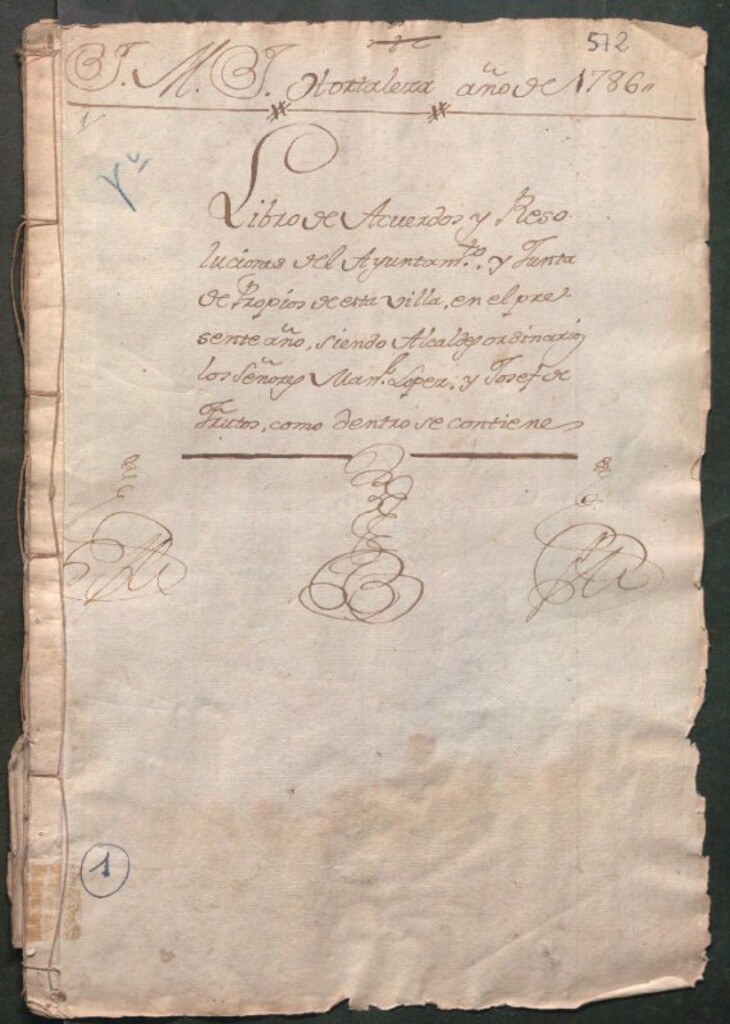 512
J. M. J. Hortaleza año de 1786
Libro de Acuerdos y Reso-
luciones del Ayuntam.to, y Junta
de Propios de esta villa, en el pre-
sente año, siendo Alcaldes ordinarios
los Señores Man.l Lopez, y Josef de
Frutos, como dentro se contiene
1